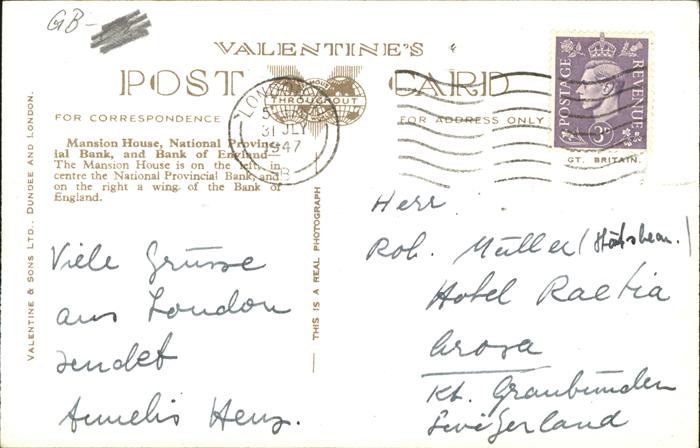 GB-
VALENTINE'S
POST CARD
THROUGHOUT
FOR CORRESPONDENCE
FOR ADDRESS ONLY
LONDON
31 JLY
1947
POSTAGE
REVENUE
3D
GT. BRITAIN.
Mansion House, National Provinc-
ial Bank, and Bank of England
The Mansion House is on the left, in
centre the National Provincial Bank, and
on the right a wing of the Bank of
England.
VALENTINE & SONS LTD., DUNDEE AND LONDON.
THIS IS A REAL PHOTOGRAPH
Viele Grüsse
aus London
sendet
Annelis Henz.
Herr
Rob. Müller
Hotel Raetia
Arosa
Kt. Graubünden
Switzerland